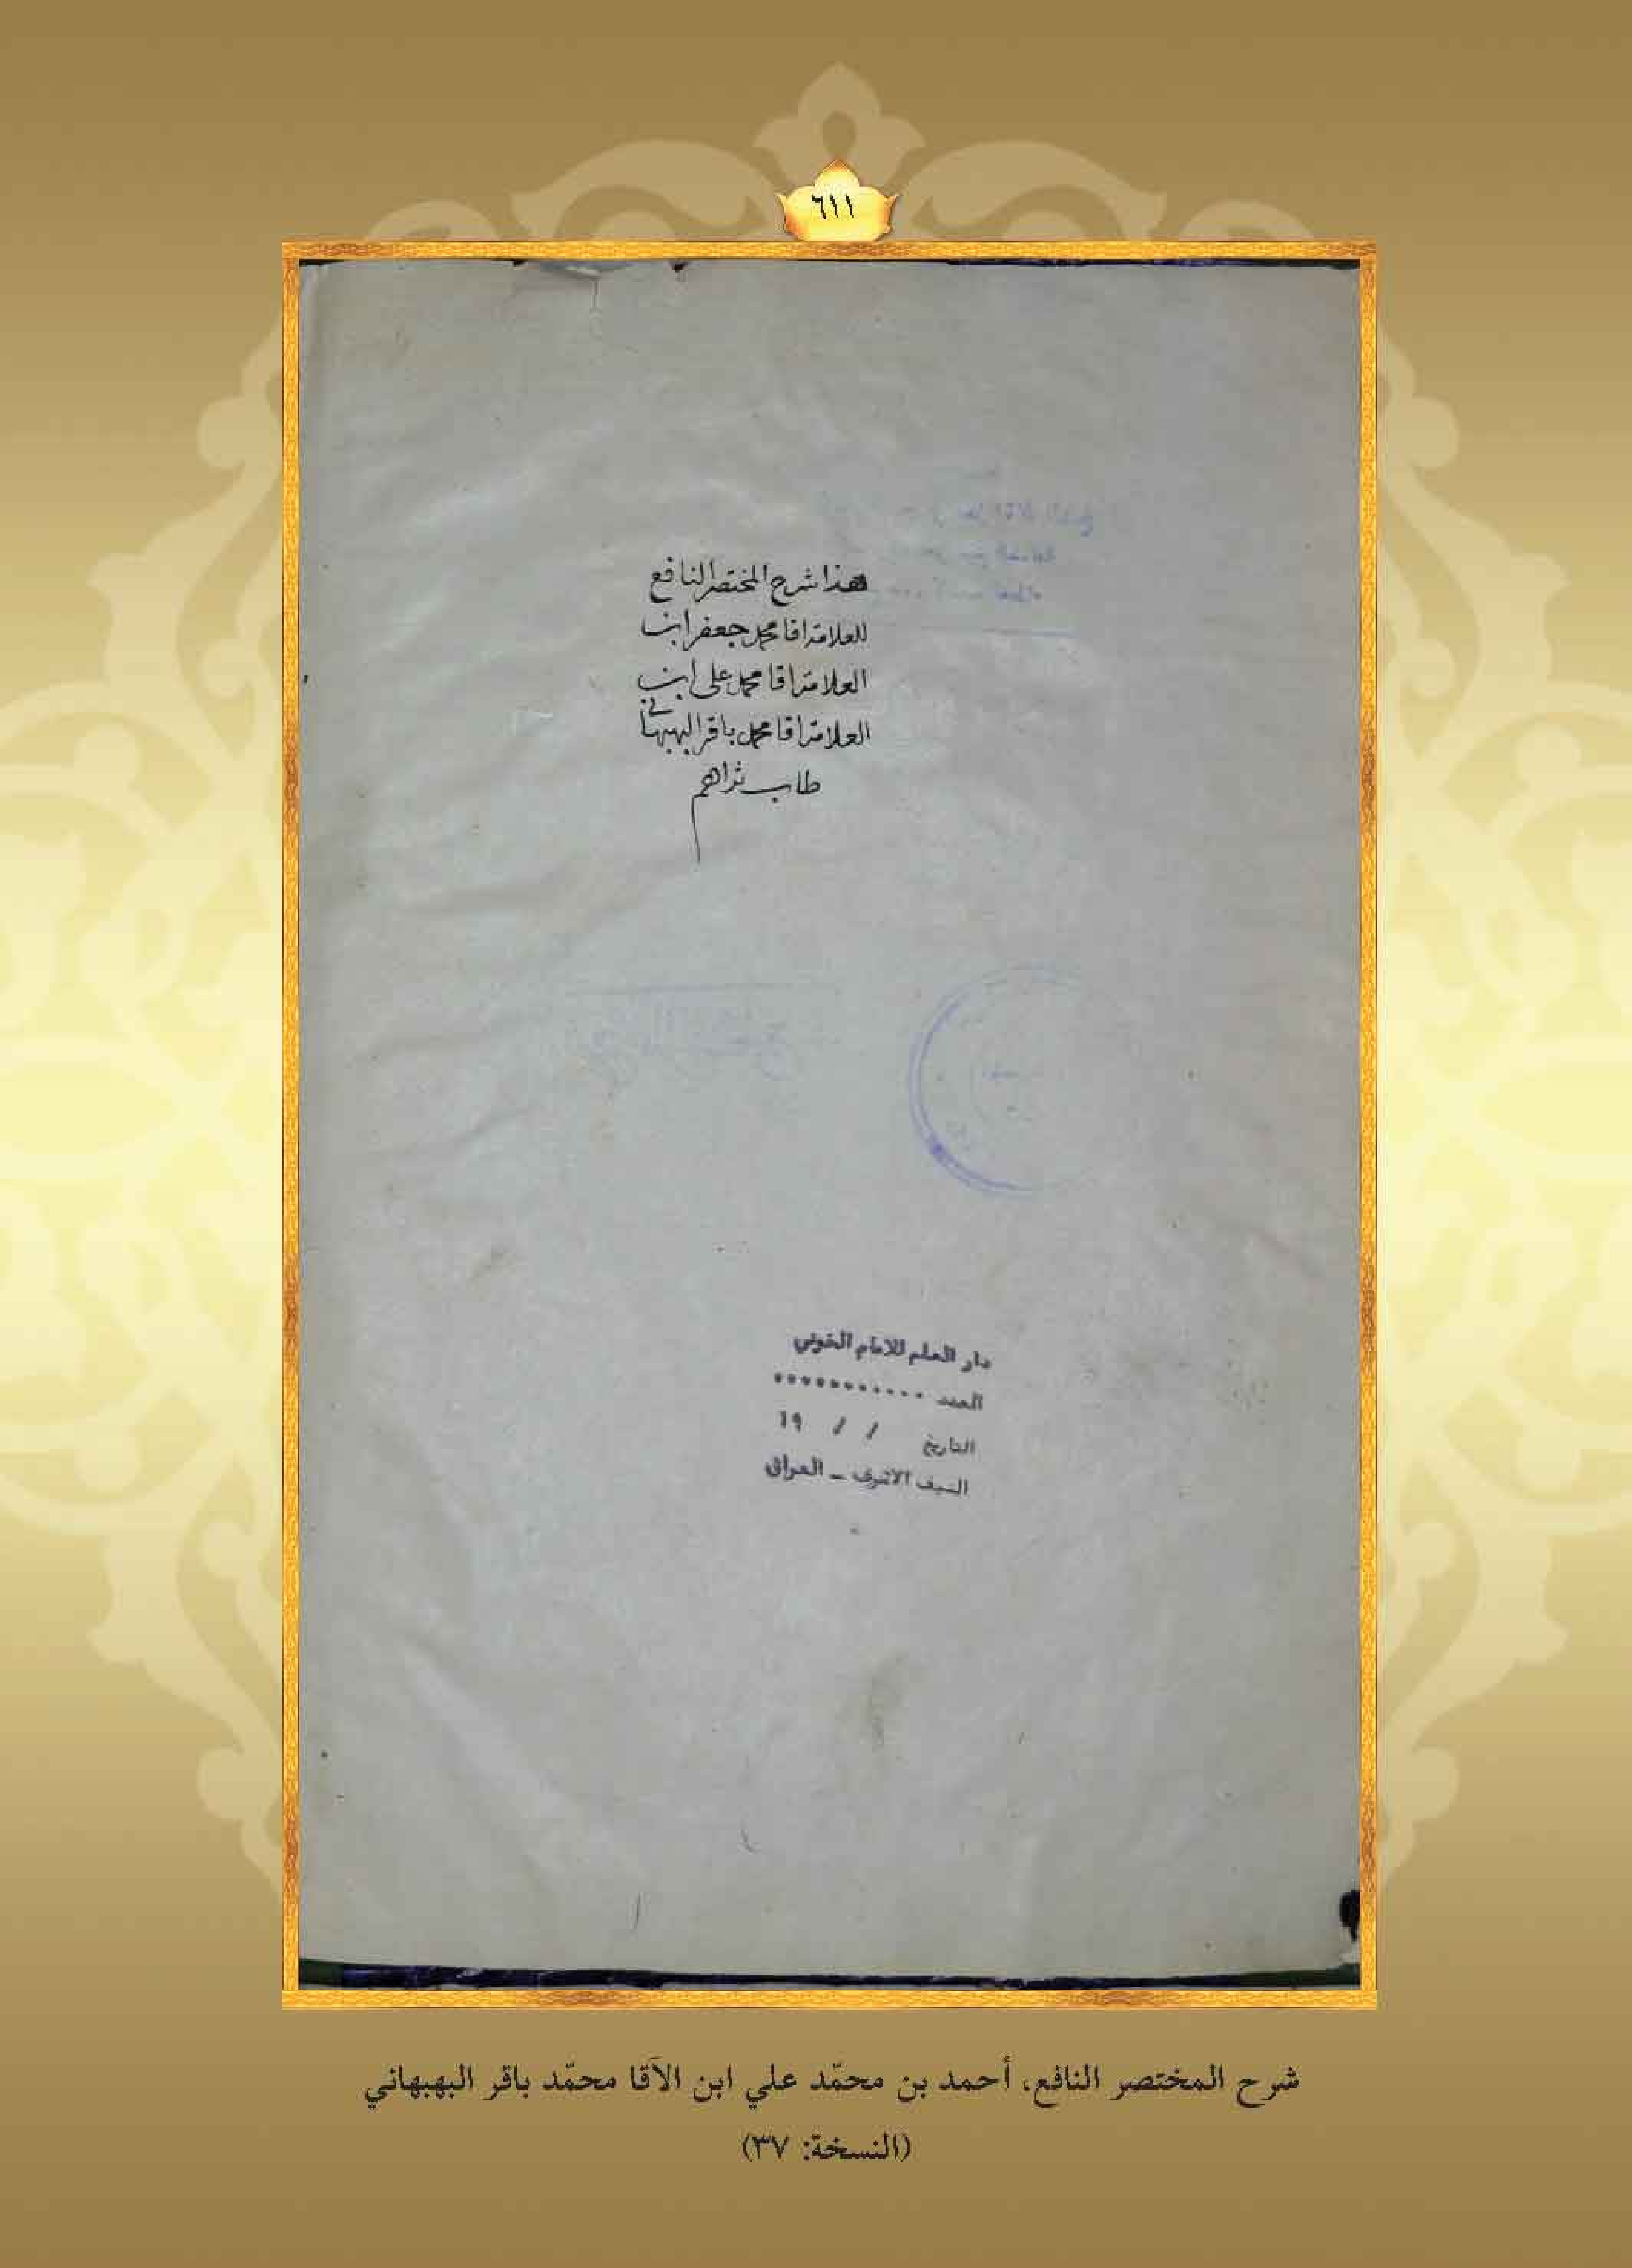 ٦١١
هذا شرح المختصر النافع
للعلامة اقا محمد جعفر ابن
العلامة اقا محمد علي ابن
العلامة اقا محمد باقر البهبهاني
طاب ثراهم
دار العلم للامام الخوئي
العدد ............
التاريخ / / ١٩
النجف الاشرف - العراق
شرح المختصر النافع، أحمد بن محمّد علي ابن الآقا محمّد باقر البهبهاني
(النسخة: ٣٧)